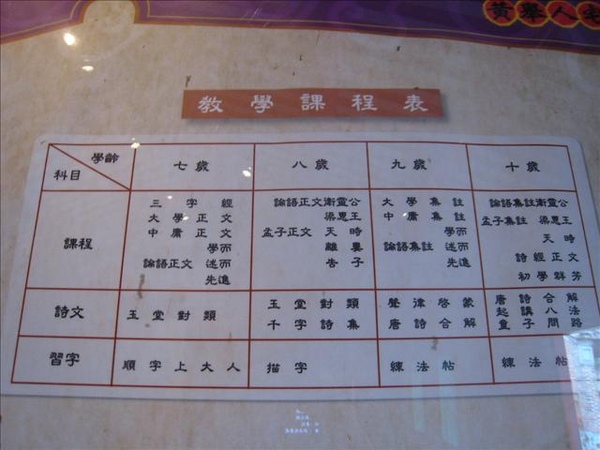 黃舉人宅
教學課程表
學齡 七歲 八歲 九歲 十歲
科目
課程
三字經
大學正文
中庸正文
學而
論語正文 述而
先進
論語正文衛靈公
梁惠王
孟子正文 天時
離婁
告子
大學集註
中庸集註
學而
論語集註 述而
先進
論語集註衛靈公
孟子集註 梁惠王
天時
詩經正文
初學群芳
詩文
玉堂對類
玉堂對類
千字詩集
聲律啓蒙
唐詩合解
唐詩合解
起講八法
童子問路
習字 順字上大人 描字 練法帖 練法帖